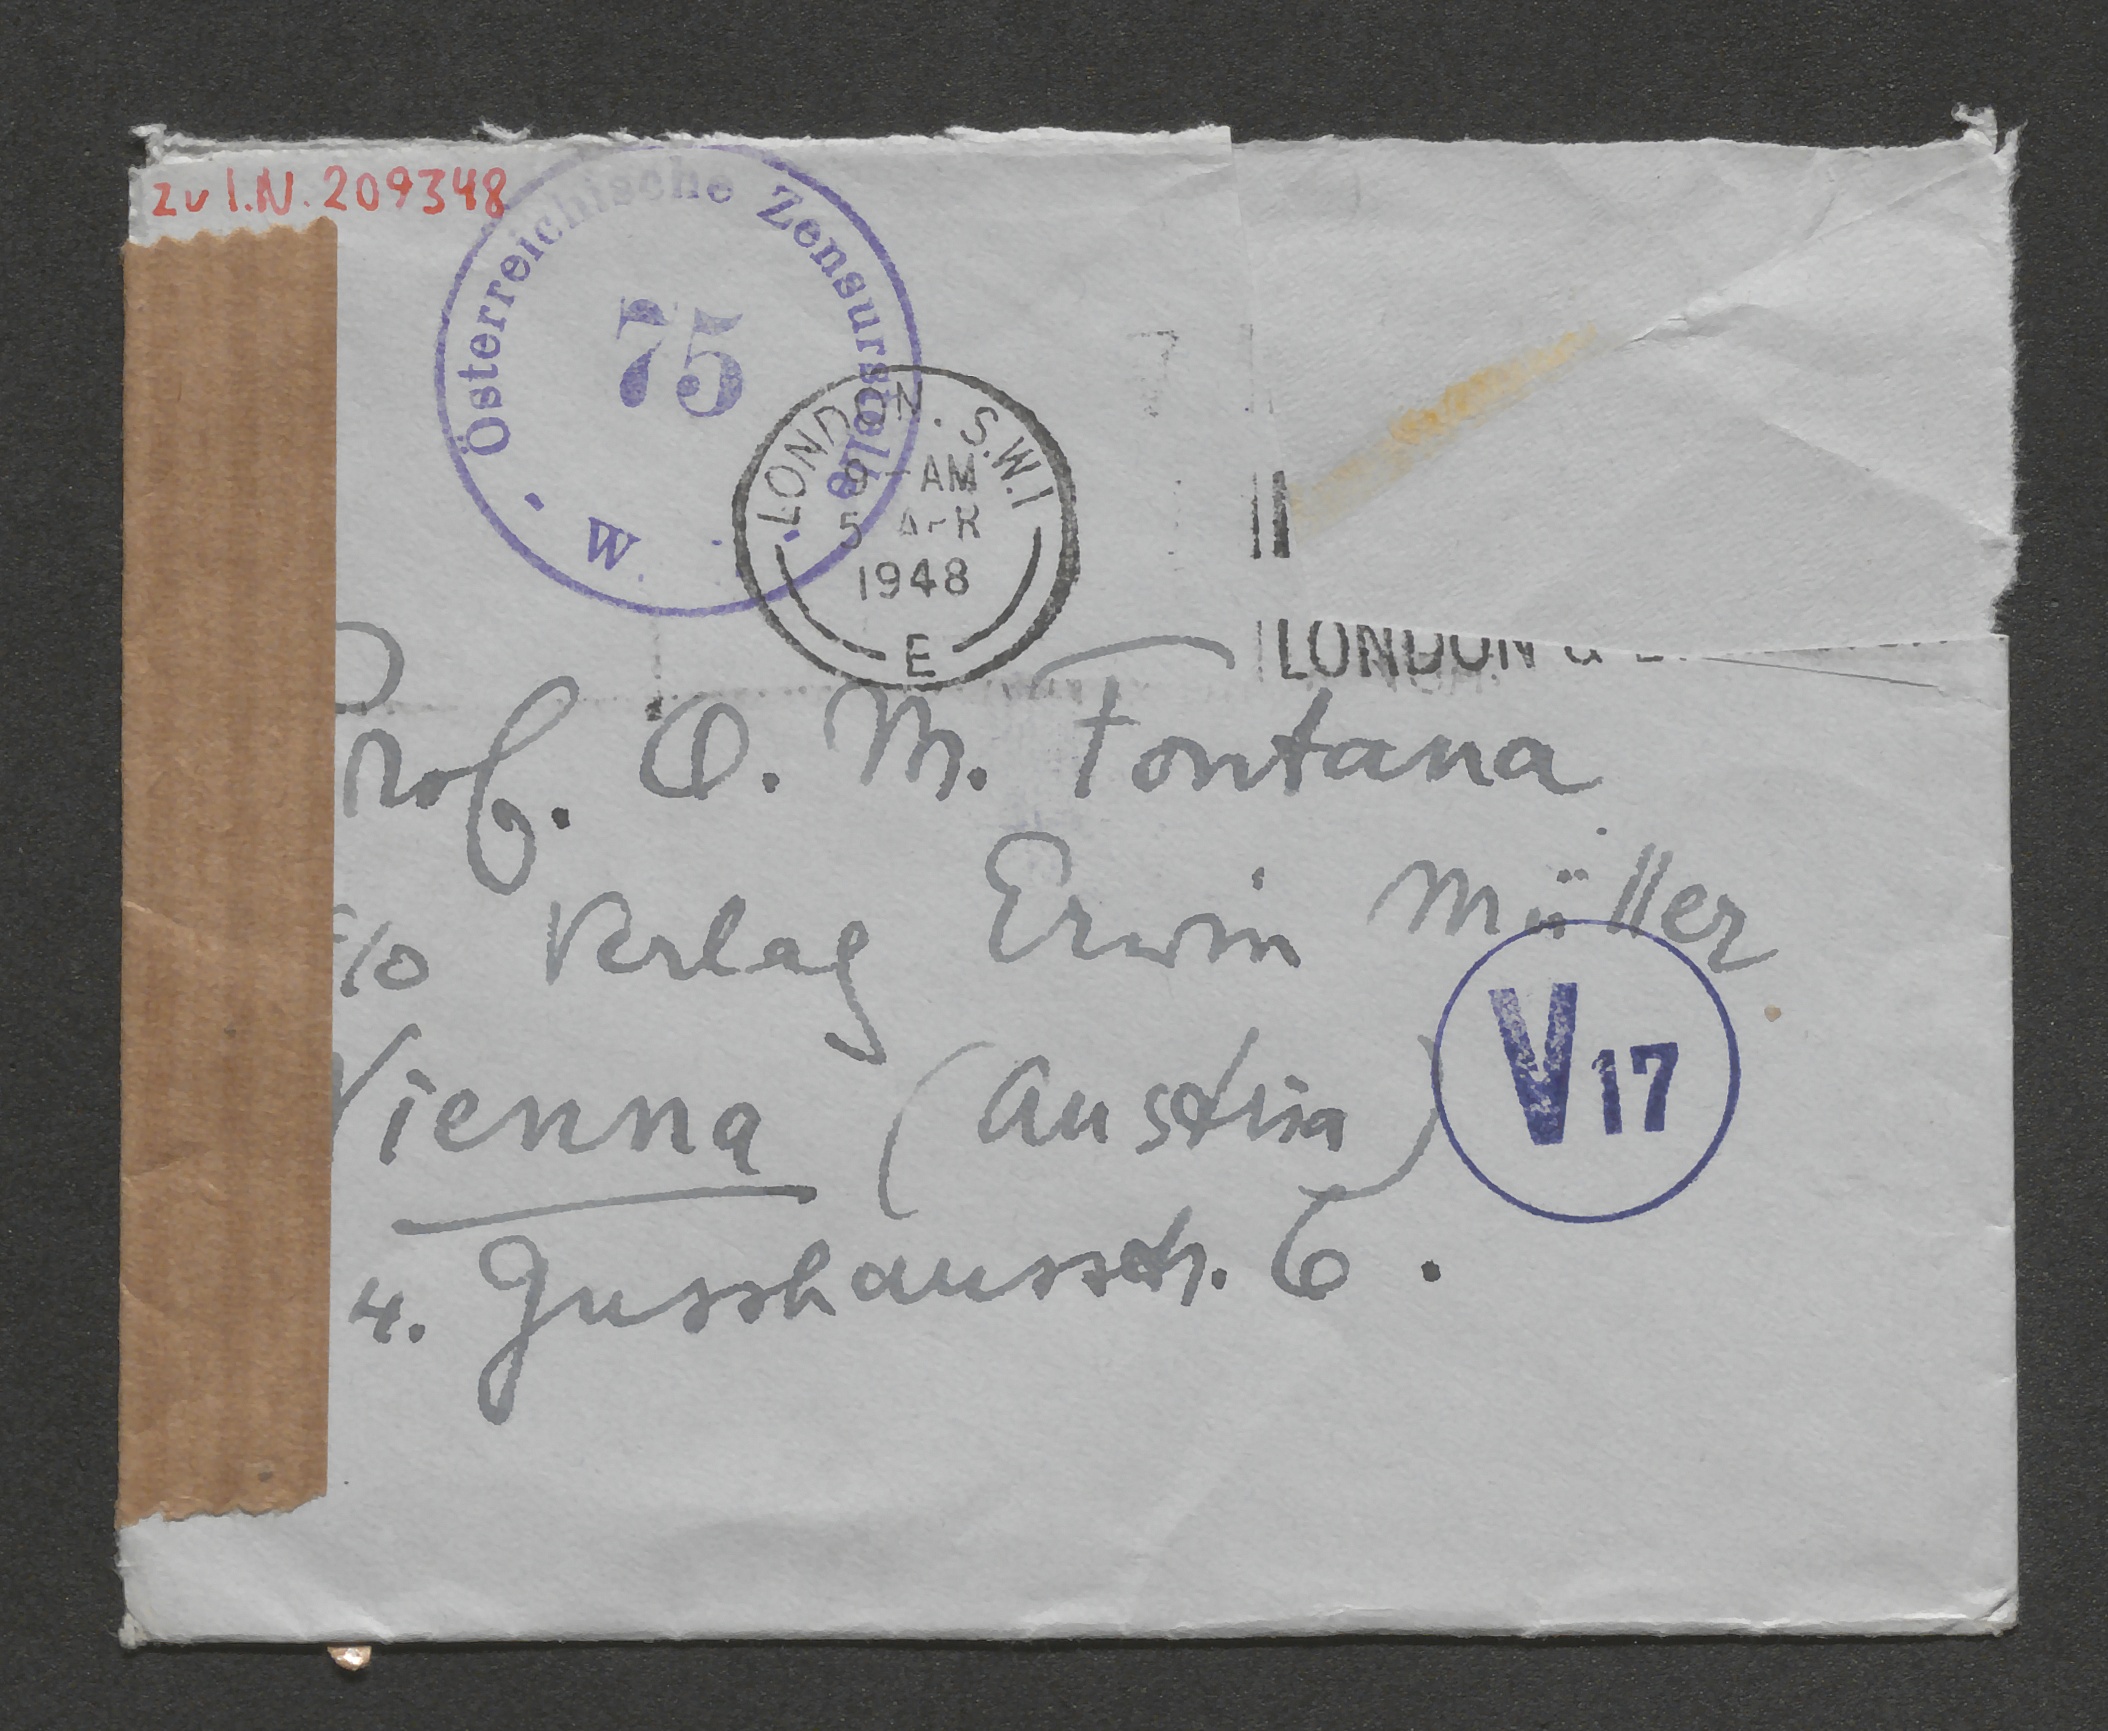 zu I.N. 209348
Österreichische Zensurstelle
75
W.
LONDON. S.W.1
9 - AM
5 APR
1948
E
LONDON
Prof. O. M. Fontana
c/o Verlag Erwin Müller
V 17
Vienna (Austria)
4. Gusshausstr. 6.